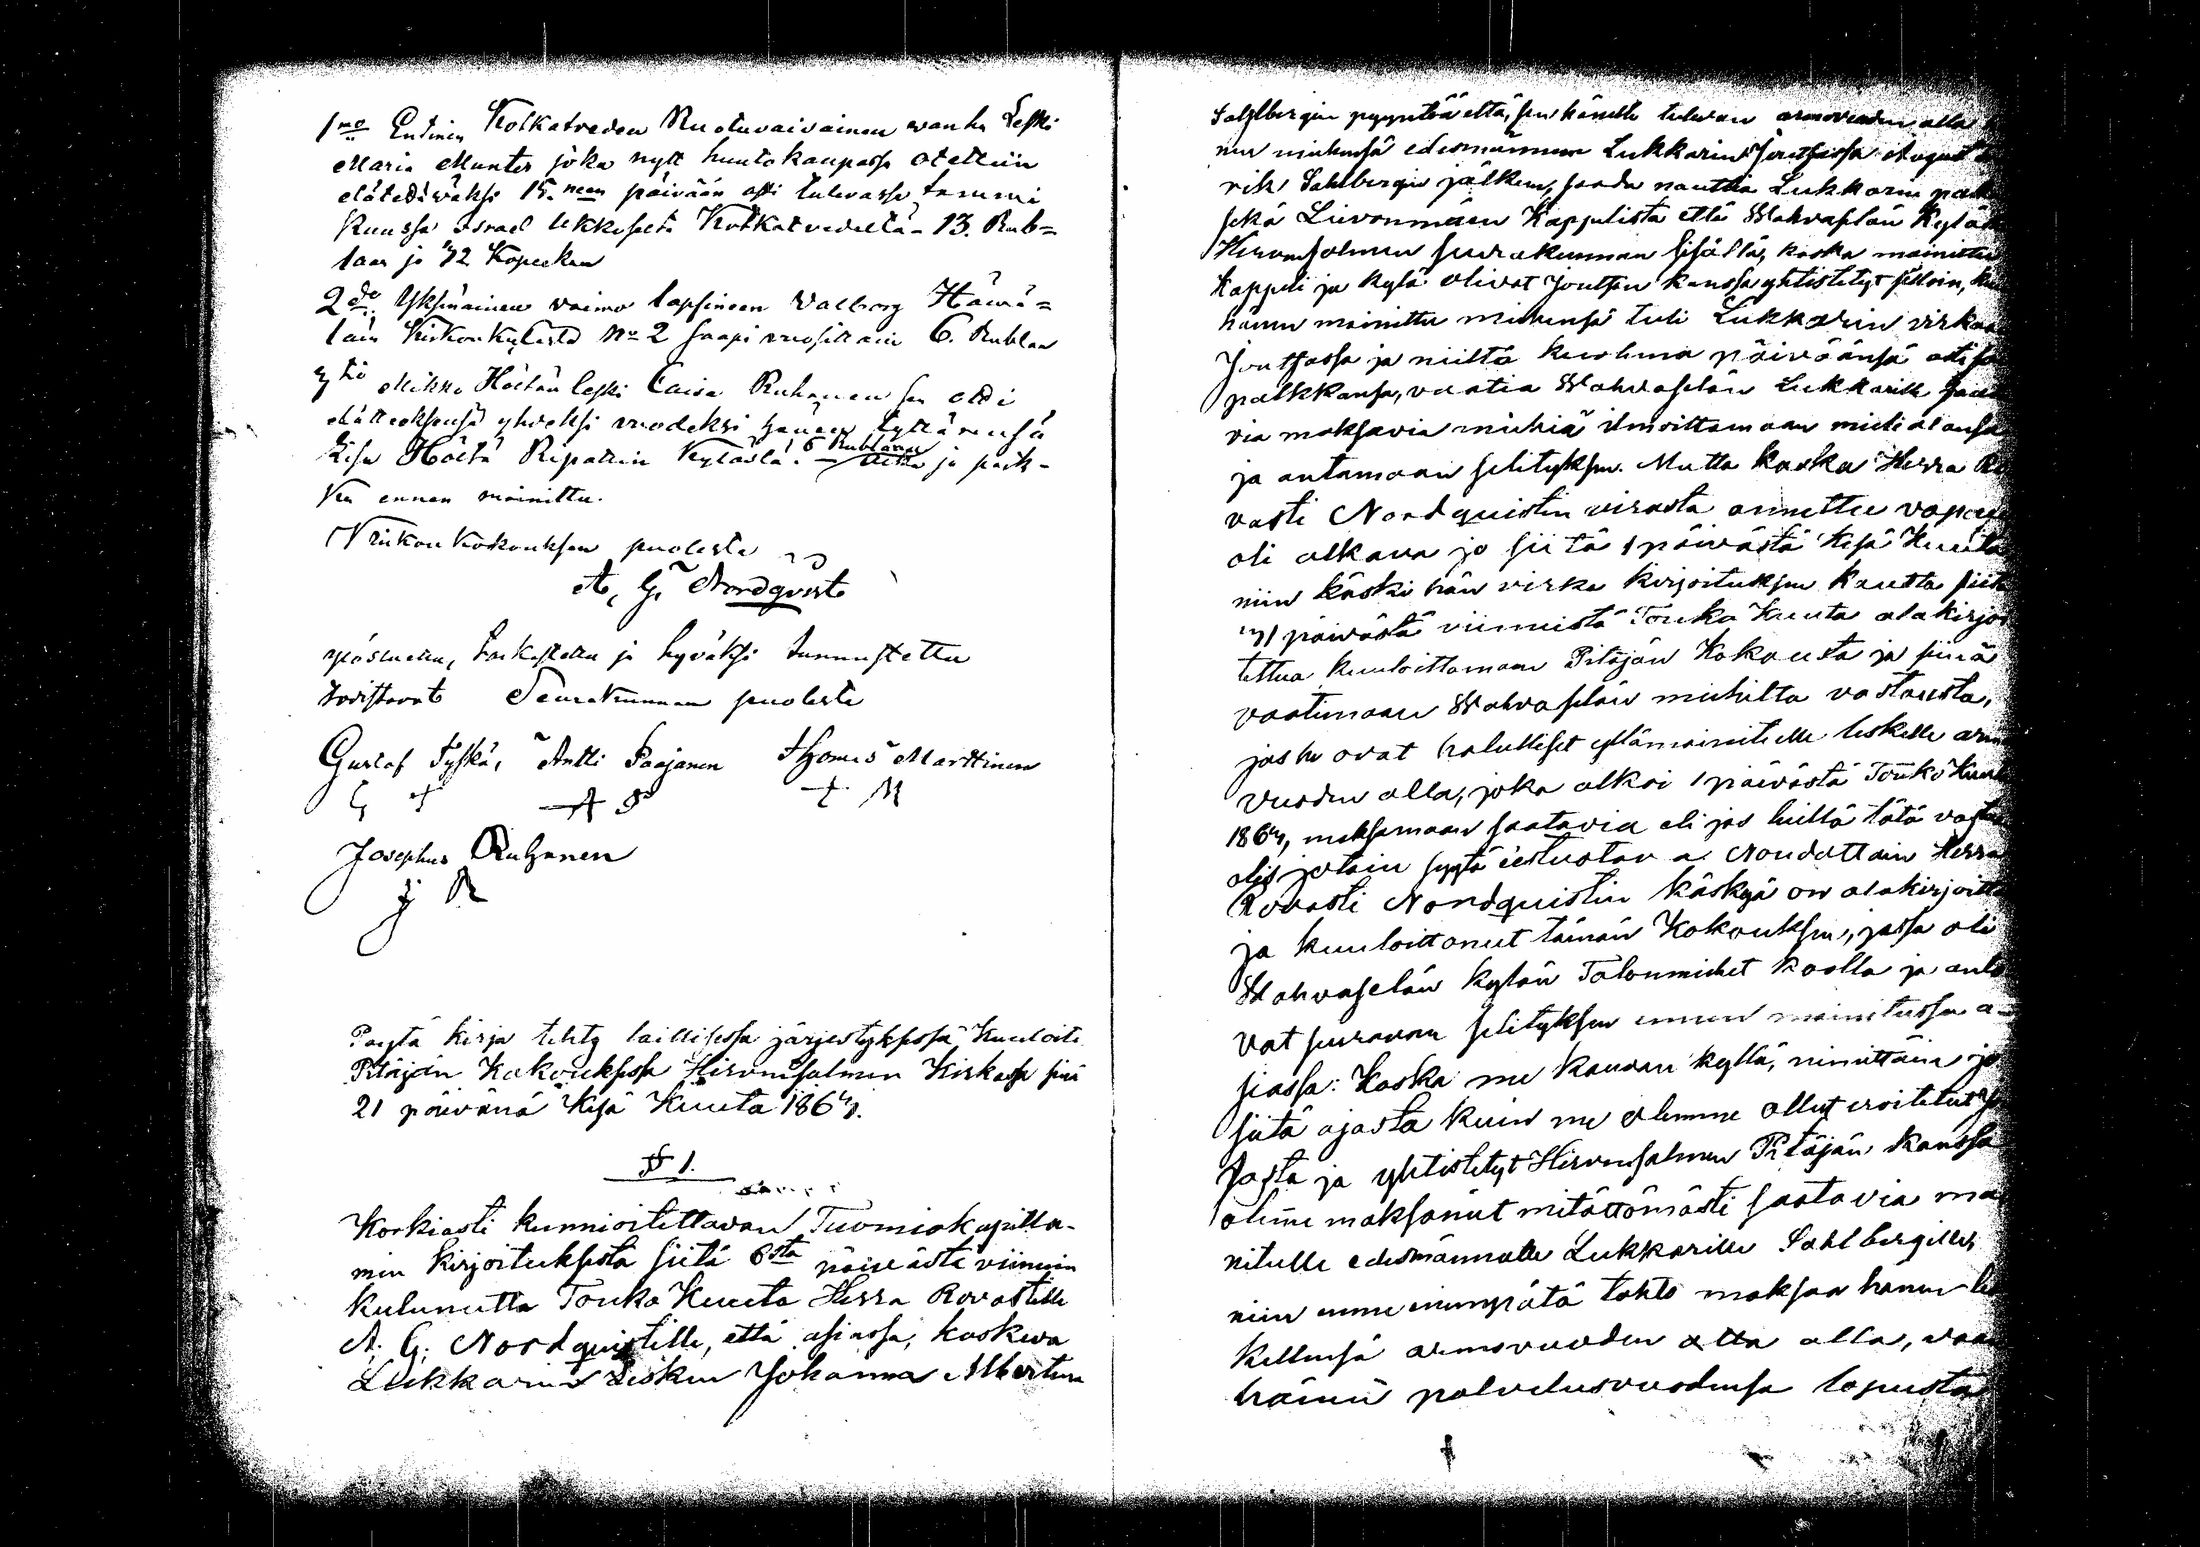 1mo Entinen Kotkatveden Ruotuvaivainen wanha Leski
Maria Munter joka nytt huutokaupassa otettiin
elätettäwäksi 15. neen päivään asti tulevassa tammi
Kuussa Israel Ukkoselta Kotkatvedeltä 13. Rub=
laan ja 72 Kopeekan
2do Yksinäinen vaimo lapsineen Valborg Hämä=
läin Kirkonkylästä No 2 saapi vuosittain 6. Rublaa
3tio Mikko Höltän leski Caisa Ruhanen sen otti
elätteeksensä yhdeksi vuodeksi hänen tyttärensä
Lisa Höltä Ripatin Kylästä. 5 Rublaan ja paik-
ka ennen mainittu.
Kirkon Kokouksen puolesta
A. G. Nordqvist
ylösluettu, tarkastettu ja hyväksi tunnustettu
todistavat Seurakunnan puolesta
Gustaf Tyskä, Antti Paajanen Thomas Marttinen
G T A P T M
Josephus Ruhanen
J R
Pöytä kirja tehty laillisessa järjestyksessä Kuuloite
Pitäjän Kokouksessa Hirvensalmen Kirkossa sinä
21 päivänä Kesä Kuuta 1867.
§ 1.
Korkiasti kunnioitettavan Tuomiokapitta-
min kirjoituksesta siitä 6sta päivästä viimein
kulunutta Touko Kuuta Herra Rovastille
A. G. Nordquistille, että asiassa, koskeva
Lukkarin Lesken Johanna Albertina
Sahlbergin pyyntöä että, sen hänelle tulevan armovuoden alla
nen miehensä edesmännen Lukkarin Joutsassa August
rik Sahlbergin jälken, saada nauttia Lukkarin pal
sekä Lievonmäen Kappelista että Wahvaselän Kylä
Hirvensalmen seurakunnan sisällä, koska mainittu
Kappeli ja kylä olivat Joutsan kanssa yhtistetyt silloin, ku
hänen mainittu miehensä tuli Lukkarin virkaa
Joutsassa ja niiltä kuolema päiväänsä asti
palkkansa, vaatia Wahvaselän Lukkarille
via maksavia miehiä ilmoittamaan mielialansa
ja antamaan selityksen. Mutta koska Herra Ro
vasti Nordquistin virasta annettu vapaus
oli alkava jo siitä 1 päivästä Kesä Kuuta
niin käski hän virka kirjoituksen kautta siitä
31 päivästä viimeistä Touko Kuuta alakirjoi
tettua kuuloittamaan Pitäjän Kokousta ja siinä
vaatimaan Wahvaselän miehiltä vastausta,
jos he ovat halulliset yllämainitulle leskelle armo
vuoden alla, joka alkoi 1 päivästä Touko Kuuta
1867, maksamaan saatavia eli jos heillä tätä vastaan
olis jotain syytä estustava. Noudattain Herra
Rovasti Nordquistin käskyä on alakirjoitt
ja kuuloittanut tämän Kokouksen, jossa oli
Wahvaselän kylän Talonmiehet koolla ja anto
vat seuraavan selityksen ennen mainitussa a-
siassa: Koska me kauvan kyllä, nimittäin jo
siitä ajasta kuin me olemme ollut eroitetut Jo
tasta ja yhtistetyt Hirvensalmen Pitäjän kanssa
olimme maksanut mitättömästi saatavia mai
nitulle edesmännelle Lukkarille Sahlbergille,
niin emme enempätä tahto maksaa hänen les
kellensä armovuoden alla, vaan
hänen palvelusvuodensa lopusta